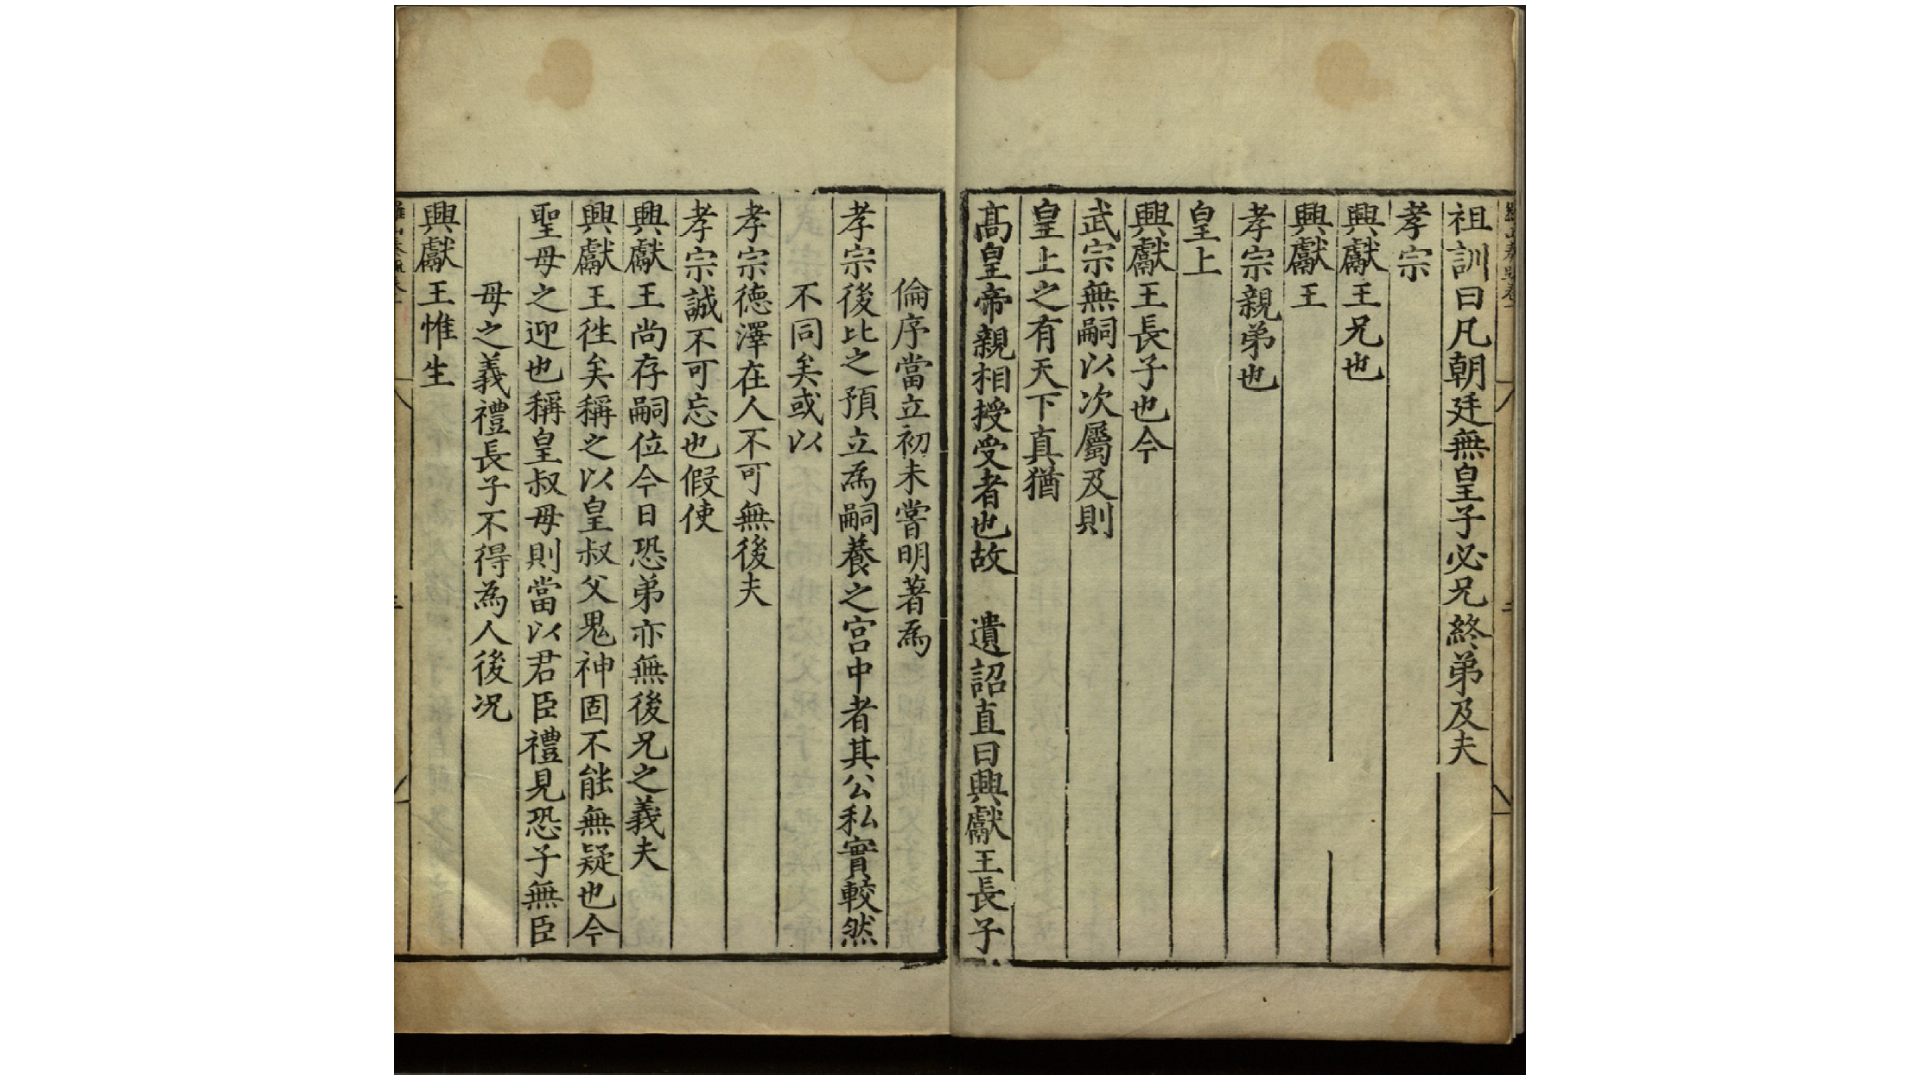 祖訓曰凡朝廷無皇子必兄終弟及夫
孝宗
興獻王兄也
興獻王
孝宗親弟也
皇上
興獻王長子也今
武宗無嗣以次屬及則
皇上之有天下真猶
髙皇帝親相授受者也故　遺詔直曰興獻王長子
倫序當立初未嘗明著爲
孝宗後比之預立爲嗣養之宫中者其公私實較然
不同矣或以
孝宗德澤在人不可無後夫
孝宗誠不可忘也假使
興獻王尚存嗣位今日恐弟亦無後兄之義夫
興獻王徃矣稱之以皇叔父鬼神固不能無疑也今
聖母之迎也稱皇叔母則當以君臣禮見恐子無臣
母之義禮長子不得為人後况
興獻王惟生